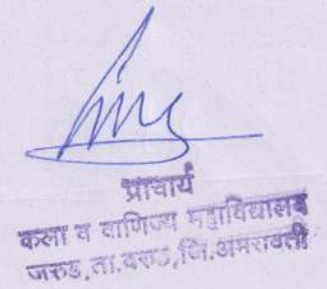 प्राचार्य
कला व वाणिज्य महाविद्यालय
जरुड, ता.वरुड, जि.अमरावती